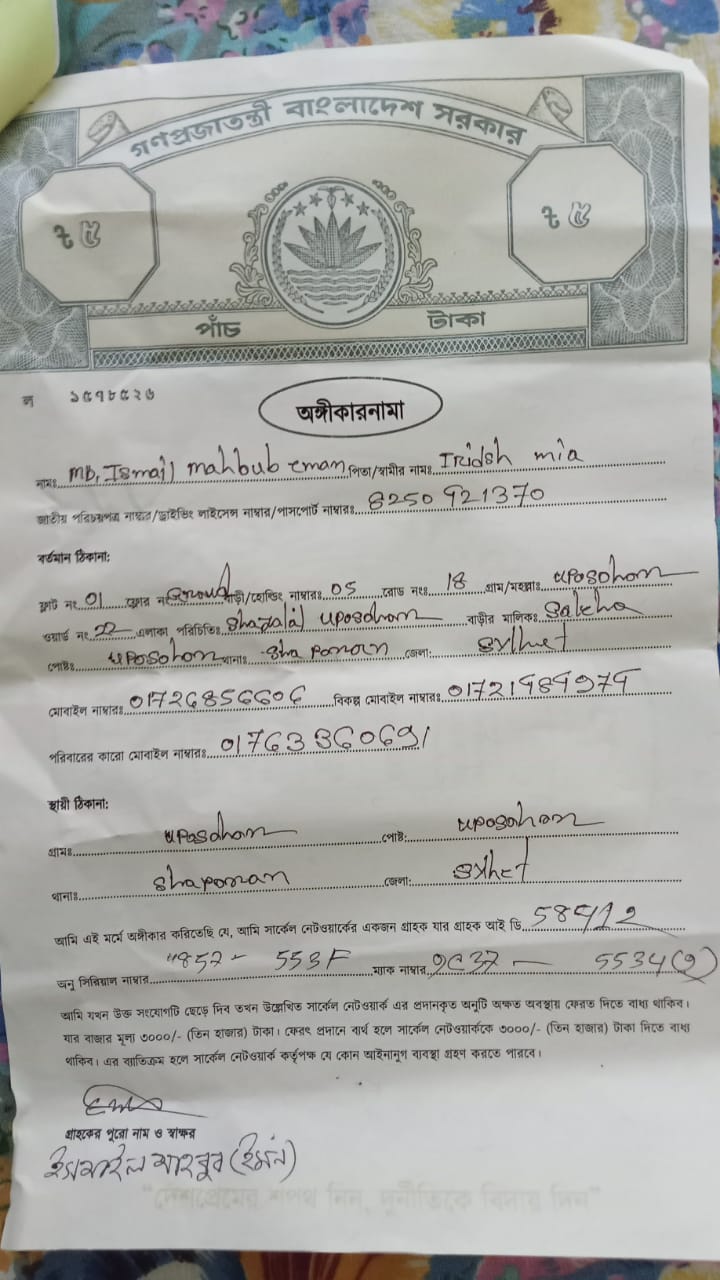 গণপ্রজাতন্ত্রী বাংলাদেশ সরকার
৳ ৫ ৳ ৫
পাঁচ টাকা
ল ১৫৭৮৫২৬
অঙ্গীকারনামা
নামঃ MD. Ismail mahbub eman পিতা/স্বামীর নামঃ Iridsh mia
জাতীয় পরিচয়পত্র নাম্বার/ড্রাইভিং লাইসেন্স নাম্বার/পাসপোর্ট নাম্বারঃ 8250921370
বর্তমান ঠিকানা:
ফ্লাট নং 01 ফ্লোর নং Ground বাড়ী/হোল্ডিং নাম্বারঃ 05 রোড নংঃ 18 গ্রাম/মহল্লাঃ uposohom
ওয়ার্ড নং 22 এলাকা পরিচিতিঃ uposohom বাড়ীর মালিকঃ Saleha
পোষ্টঃ uposohom থানাঃ Sha poran জেলা: Sylhet
মোবাইল নাম্বারঃ 01726856606 বিকল্প মোবাইল নাম্বারঃ
পরিবারের কারো মোবাইল নাম্বারঃ 01763360691
স্থায়ী ঠিকানা:
গ্রামঃ uposohom পোষ্ট: uposohom
থানাঃ Shaporan জেলা: Sylhet
আমি এই মর্মে অঙ্গীকার করিতেছি যে, আমি সার্কেল নেটওয়ার্কের একজন গ্রাহক যার গ্রাহক আই ডি
অনু সিরিয়াল নাম্বার ম্যাক নাম্বার
আমি যখন উক্ত সংযোগটি ছেড়ে দিব তখন উল্লেখিত সার্কেল নেটওয়ার্ক এর প্রদানকৃত অনুটি অক্ষত অবস্থায় ফেরত দিতে বাধ্য থাকিব।
যার বাজার মূল্য ৩০০০/- (তিন হাজার) টাকা। ফেরৎ প্রদানে ব্যর্থ হলে সার্কেল নেটওয়ার্ককে ৩০০০/- (তিন হাজার) টাকা দিতে বাধ্য
থাকিব। এর ব্যতিক্রম হলে সার্কেল নেটওয়ার্ক কর্তৃপক্ষ যে কোন আইনানুগ ব্যবস্থা গ্রহণ করতে পারবে।
গ্রাহকের পুরো নাম ও স্বাক্ষর
ইসমাইল মাহবুব (ইমন)
"দেশপ্রেমের শপথ নিন, দুর্নীতিকে বিদায় দিন"